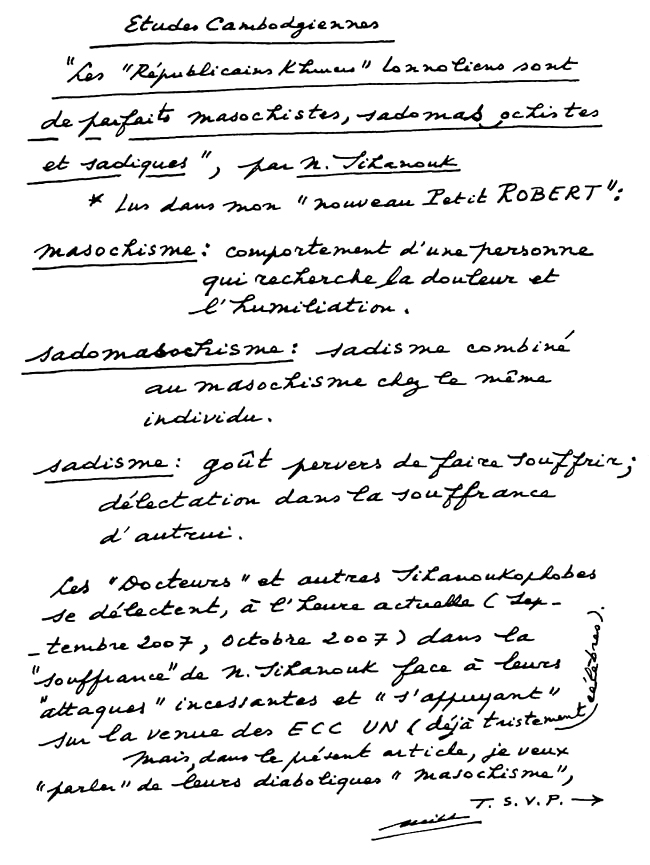 Etudes Cambodgiennes
"Les "Républicains Khmers" lonnoliens sont
de parfaits masochistes, sadomasochistes
et sadiques", par N. Sihanouk
* Lus dans mon "nouveau Petit ROBERT":
masochisme: comportement d'une personne
qui recherche la douleur et
l'humiliation.
sadomasochisme: sadisme combiné
au masochisme chez le même
individu.
sadisme: goût pervers de faire souffrir;
délectation dans la souffrance
d'autrui.
Les "Docteurs" et autres Sihanoukophobes
se délectent, à l'heure actuelle (Sep-
-tembre 2007, Octobre 2007) dans la
"souffrance" de N. Sihanouk face à leurs
"attaques" incessantes et "s'appuyant"
sur la venue des ECC UN (déjà tristement célèbres).
Mais, dans le présent article, je veux
"parler" de leurs diaboliques "masochisme",
T. S. V. P. →